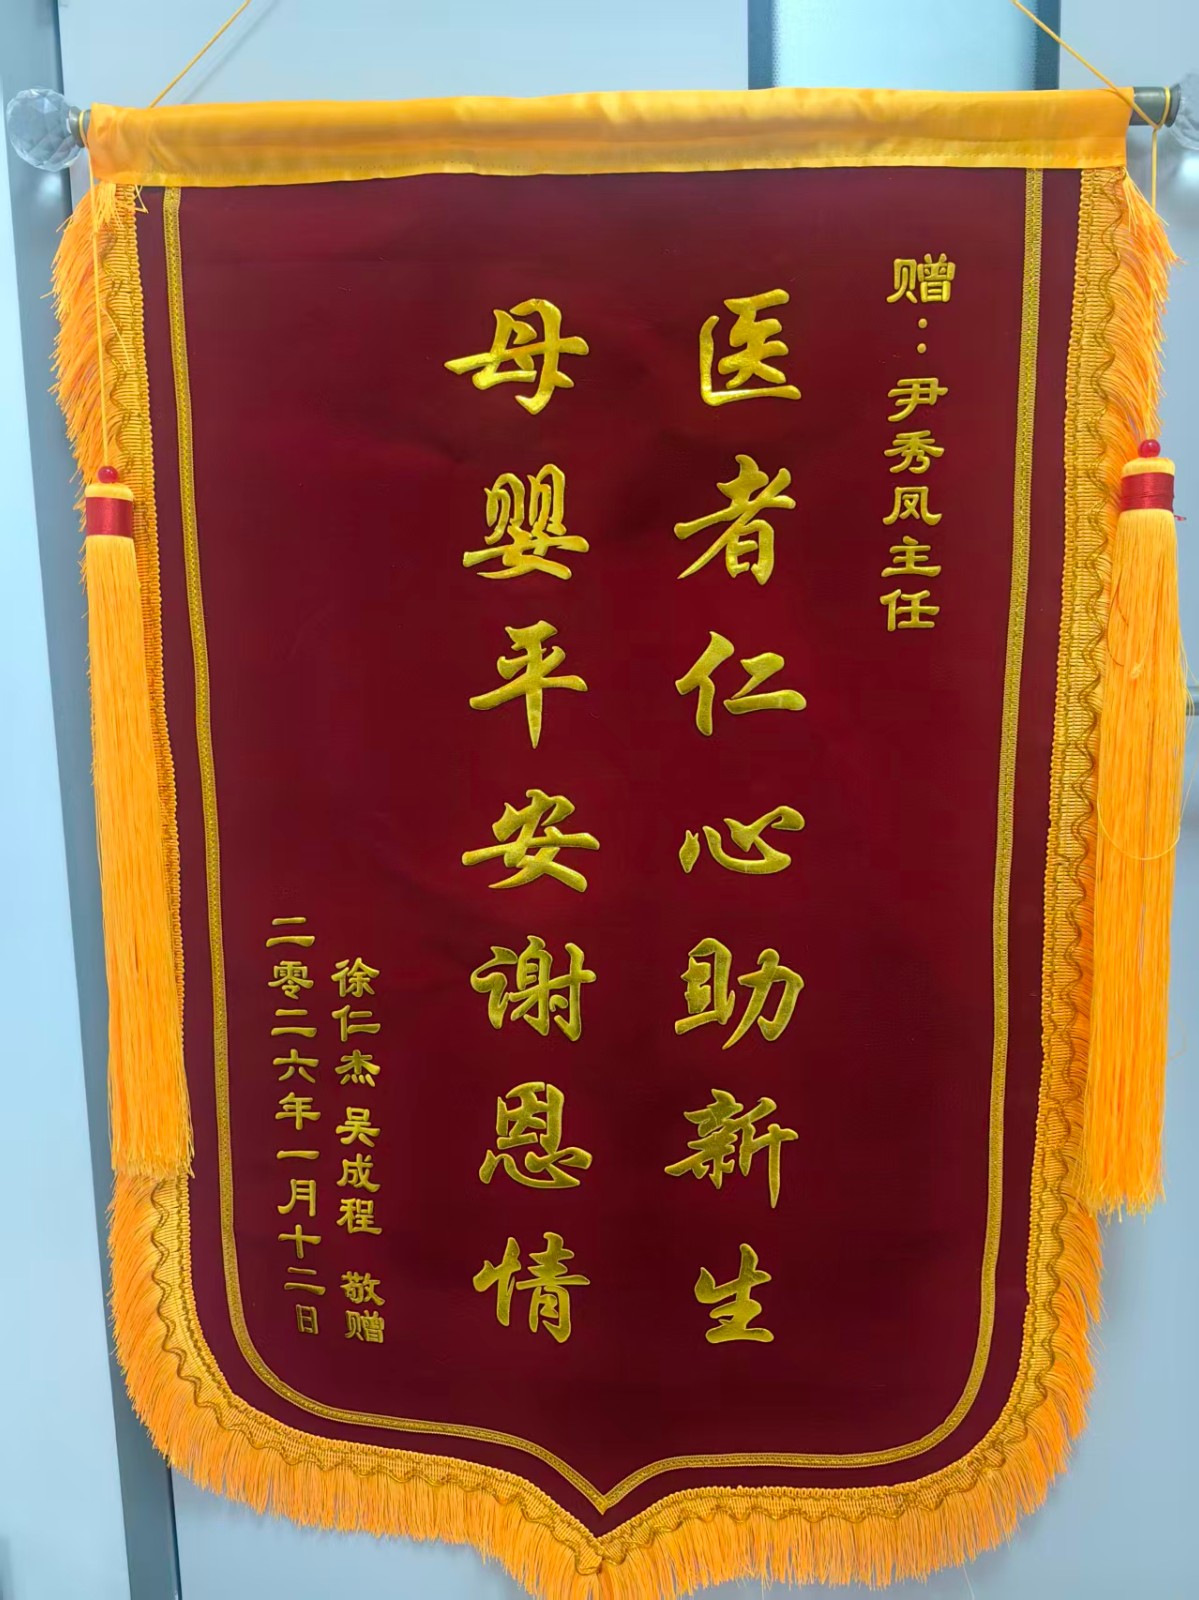 赠：尹秀凤主任
医者仁心助新生
母婴平安谢恩情
徐仁杰 吴成程 敬赠
二零二六年一月十二日